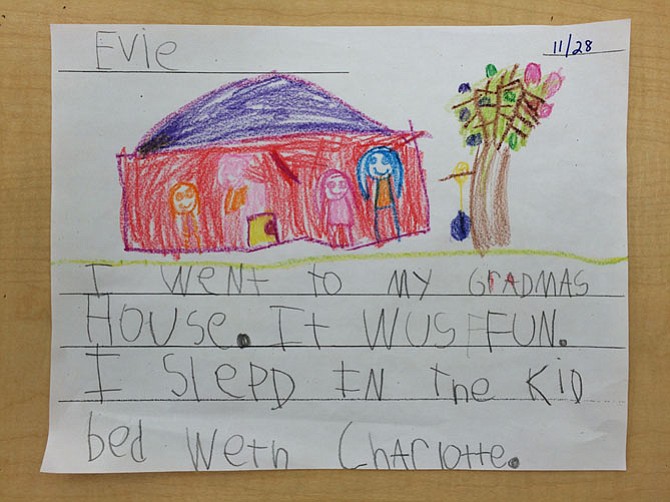 Evie
11/28
I WENt to MY GRADMAS
HOUSe. It WUS FUN.
I SlePD IN the KiD
bed Weth ChArlotte.